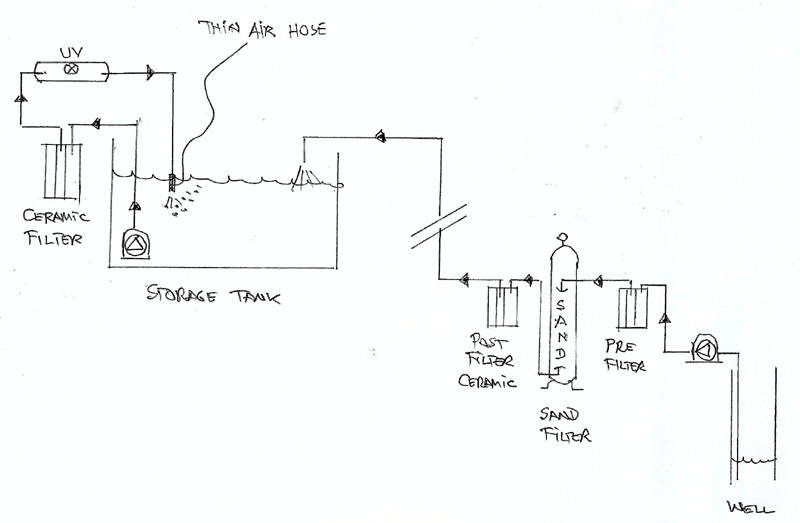 THIN AIR HOSE
UV
CERAMIC
FILTER
STORAGE TANK
SAND
POST
FILTER
CERAMIC
PRE
FILTER
SAND
FILTER
WELL